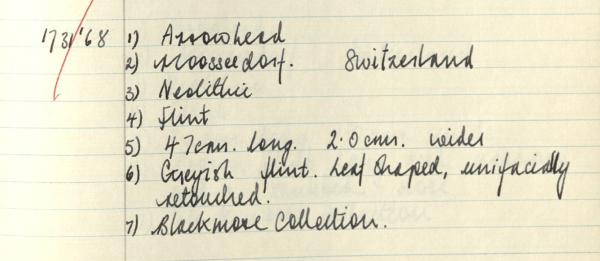 173/'68 1) Arrowhead
2) Moosseedorf. Switzerland
3) Neolithic
4) Flint
5) 4.7cms. long. 2.0cms. wide
6) Greyish flint. Leaf Shaped, unifacially
retouched.
7) Blackmore Collection.